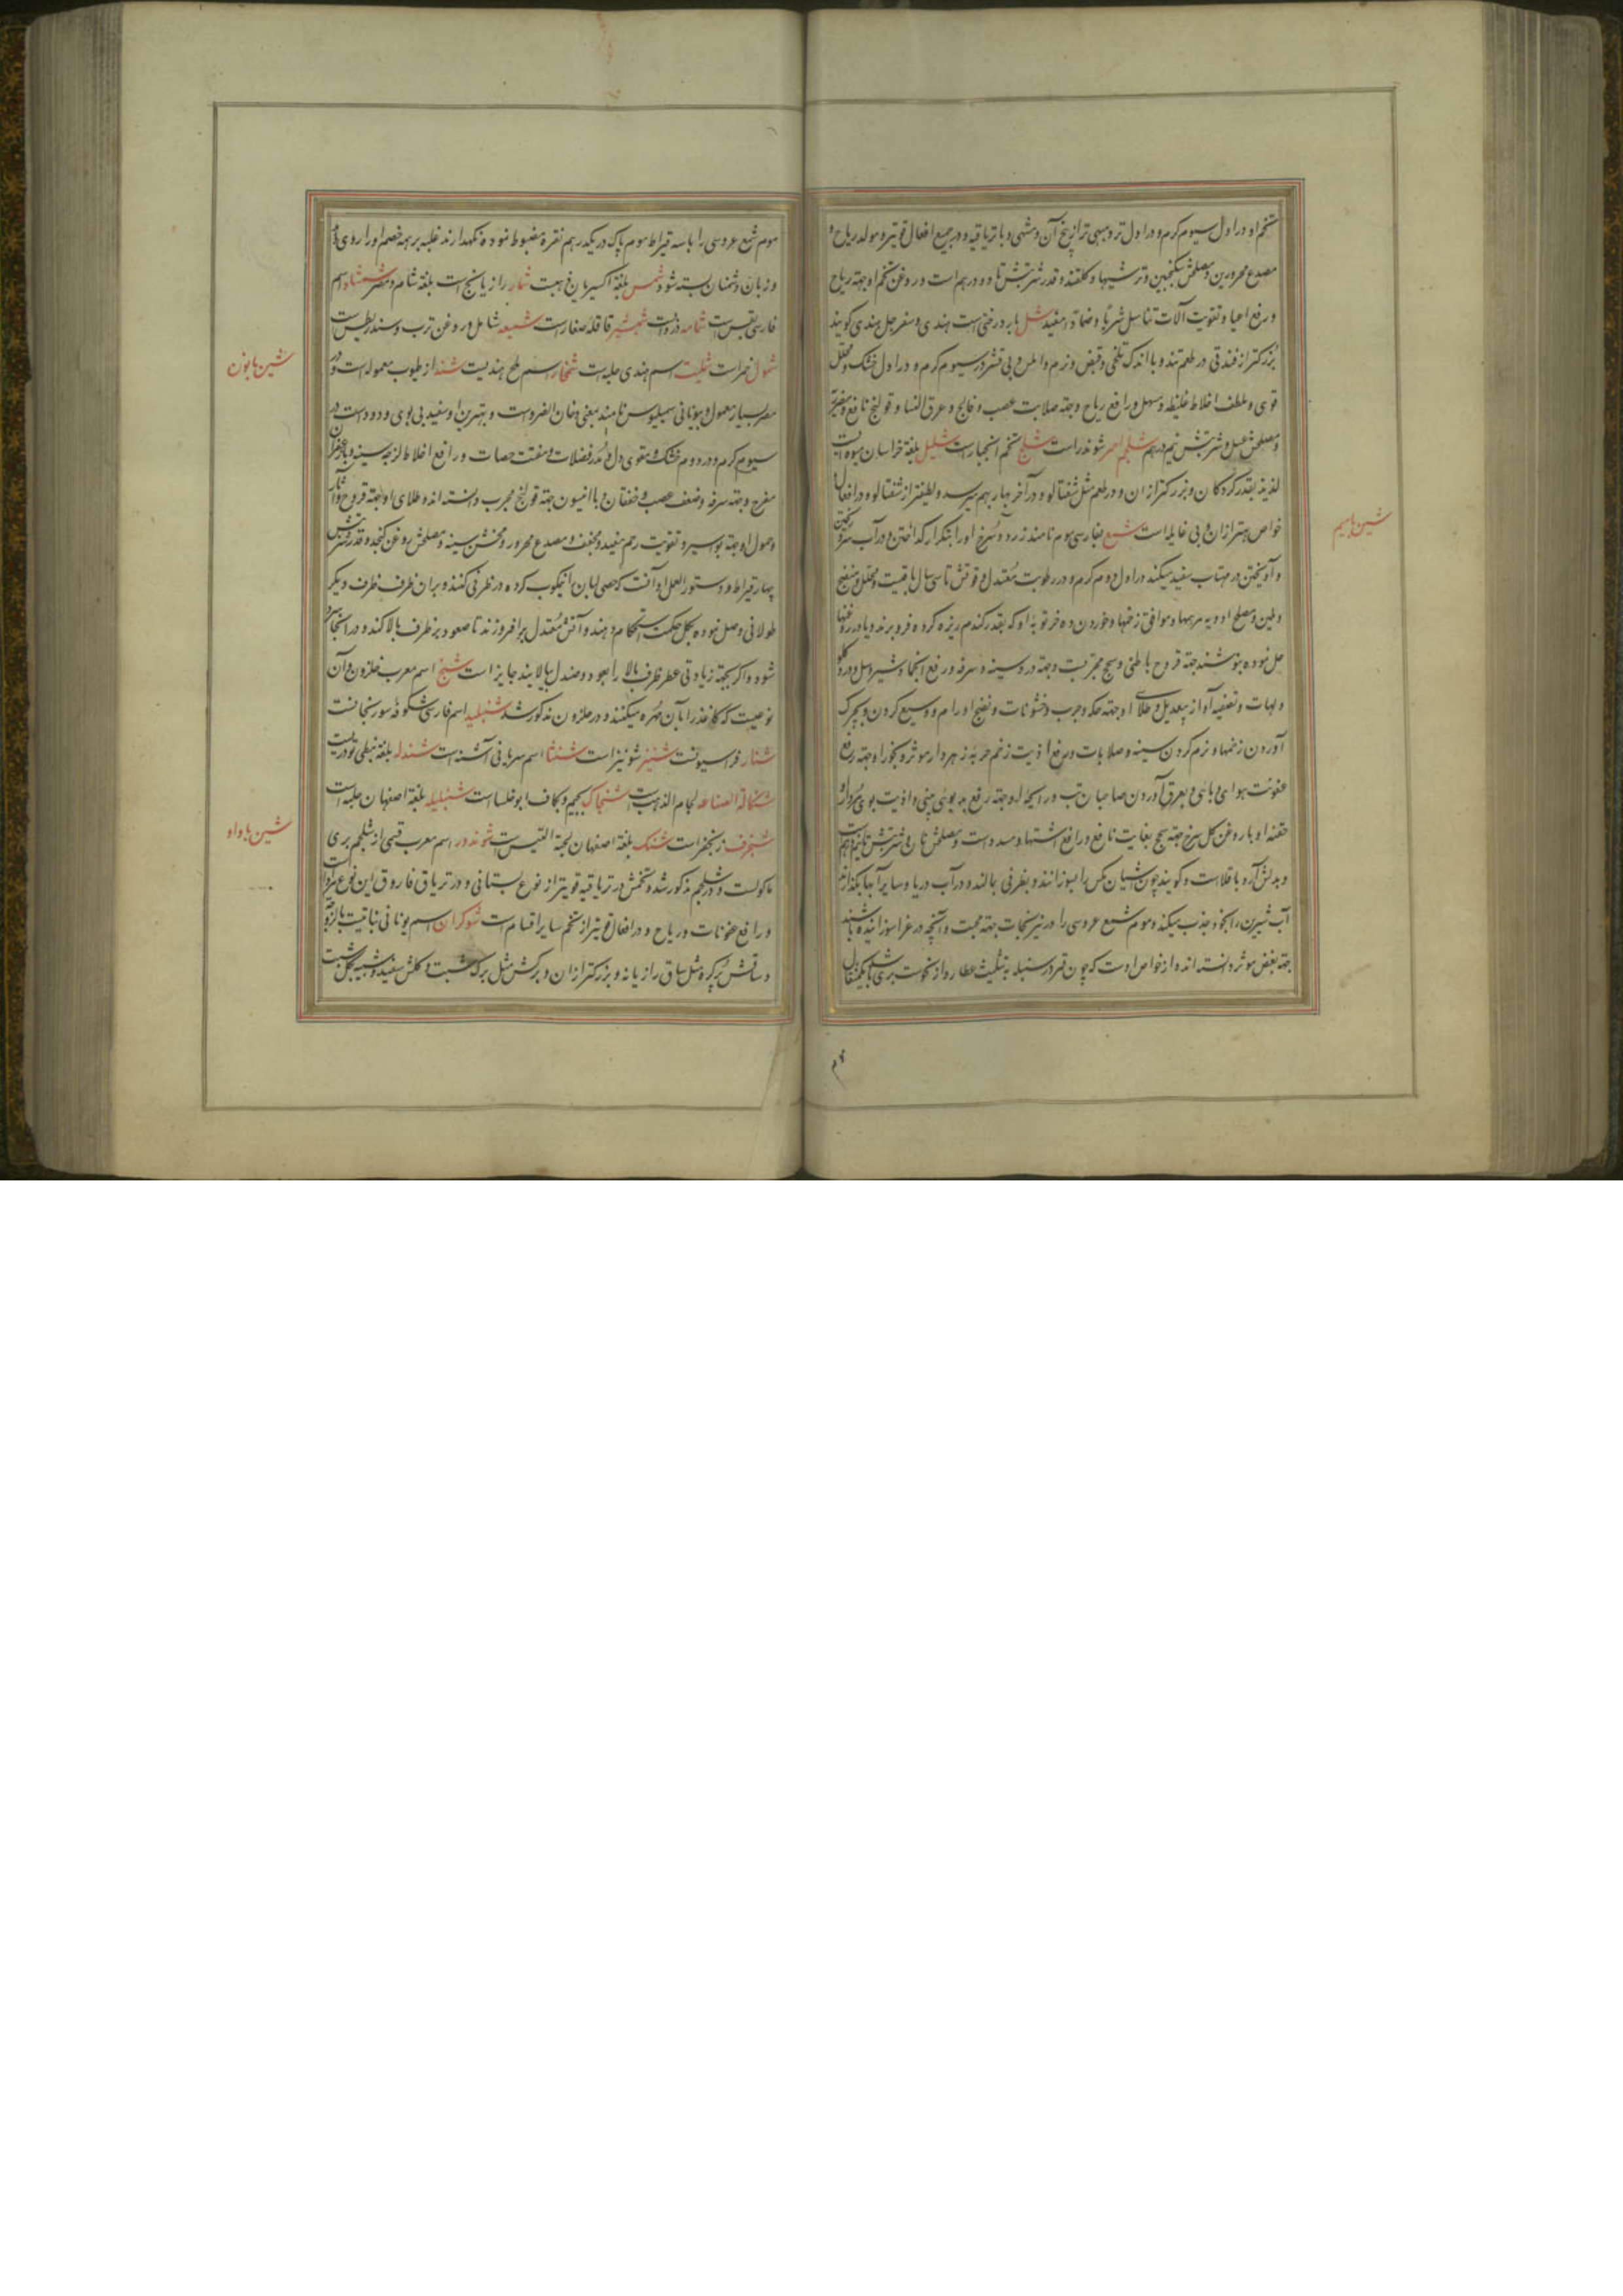 تخم او در اول سیوم گرم و در اول تر و مبهی تر از بیخ آن و مشهی و با تریاقیه و در جمیع افعال قویتر و مولد ریاح و
مصدع محرورین و مصلحش سکنجبین و ترشیها و گلقند و قدر شربتش تا دو درهم است و روغن تخم او جهة ریاح
و رفع اعیا و تقویت آلات تناسل شربا و ضمادا مفید شل بار درختی است هندی و سفرجل هندی گویند
بزرگتر از فندقی در طعم تند و با اندک تلخی و قبض و نرم و املس و بی قشر در سیوم گرم و در اول خشک و محلل
قوی و ملطف اخلاط غلیظه و مسهل و رافع ریاح و جهة صلابت عصب و فالج و عرق النسا و قولنج نافع و
و مصلحش عسل و شربتش نیم درهم شلجم احمر شوندر است شلح تخم انجبار است شلیل بلغة خراسان میوه ایست
لذیذ بقدر گردکان و بزرگتر از ان و در طعم مثل شفتالو و در آخر بهار بهم میرسد و لطیفتر از شفتالو و در افعال و
خواص بهتر از ان و بی غایله است شمع بفارسی موم نامند زرد و سرخ او را بتکرار گداختن و در آب سرد ریختن
و آویختن در مهتاب سفید میکند در اول دوم گرم و در رطوبت معتدل و قوتش تا سی سال باقیست و محلل و منضج
و ملین و مصلح ادویه مرهمها و موافق زخمها و خوردن ده خرتوبه او که بقدر گندم ریزه کرده فرو برند و یا در روغنها
حل نموده بنوشند جهة قروح باطنی و سحج مجربست و جهة درد سینه و سرفه و رفع انجماد شیر و سل و درد گلو
و لهات و تصفیه آواز بیعدیل و طلای او جهة حکه و جرب و خشونات و نضج اورام و وسیع کردن و بچرک
آوردن زخمها و نرم کردن سینه و صلابات و رفع اذیت زخم حربه زهردار موثر و بخور او جهة رفع
عفونت هوای وبائی و بعرق آوردن صاحبان تب و رایحه او جهة رفع بدبوئی بینی و اذیت بوی مردار و
حقنه او با روغن گل سرخ جهة سحج بغایت نافع و رافع اشتها و مسدد است و مصلحش نان و شربتش تا نیم درهم است
و بدلش آرد باقلاست و گویند چون آشیان مگس را بسوزانند و بظرفی بمالند و در آب دریا و سایر آبها بگذارند
آب شیرین را بخود جذب میکند و موم شمع عروسی را در نیرنجات جهة محبت و آنچه در عزا سوزانیده باشند
جهة بغض موثر دانسته اند و از خواص اوست که چون قمر در سنبله به تثلیث عطارد و از نحوست بری باشد یکمثقال
شین با میم
موم شمع عروسی را با سه قیراط موم پاک در یکدرهم نقره مضبوط نموده نگهدارند غلبه بر همه خصم او را روی دهد
و زبان دشمنان بسته شود شمس بلغة اکسیریان ذهبست شمار رازیانجست بلغة شام و مصر شمشاد اسم
فارسی بقس است شمامه دستنبویه است شمشیر قاقله صغار است شمیعه شامل و روغن ترب و سندریطس است
شمول خمر است شملیت اسم هندی حلبه است شمخار اسم ملح هندیست شند از طیوب معموله است و در
مصر بسیار معمول و بیونانی سمیلیوس نامند بمعنی دخان الضرو است و بهترین او سفید بی بوی و دود است در
سیوم گرم و در دوم خشک و مقوی دل و مدر فضلات و مفتت حصات و رافع اخلاط لزجه سینه و با زعفران
مفرح و جهة سرفه و ضعف عصب و خفقان و با افیون جهة قولنج مجرب دانسته اند و طلای او جهة قروح و آثار
و حمول او جهة بواسیر و تقویت رحم مفید و مجفف و مصدع محرور و مخشن سینه و مصلحش روغن کنجد و قدر شربتش
چهار قیراط و دستور العمل او آنست که حصی لبان را نیمکوب کرده در ظرفی کنند و بر ان ظرف ظرف دیگر
طولانی وصل نموده بگل حکمت استحکام دهند و آتش معتدل برافروزند تا صعود بر ظرف بالا کند و در آنجا سرد
شود و اگر بجهة زیادتی عطر ظرف بالا را بعود و صندل بیالایند جایز است شنج اسم معرب حلزون و آن
نوعیست که کاغذ را بآن مهره میکنند و در حلزون مذکور شد شنبلید اسم فارسی شکوفه سورنجانست
شنار فراسیونست شنیز شونیز است شنشا اسم سریانی آشنه است شندله بلغة نبطی تودریست
شنکالة الصناعه لجام الذهبست شنجاک بجیم و بکاف ابوخلسا است شنبلیله بلغة اصفهان حلبه است
شنجرف زنجفر است شنک بلغة اصفهان لحیة التیس است شوندور اسم معرب قسمی از شلجم بری
ماکولست و در شلجم مذکور شد و تخمش در تریاقیه قویتر از نوع بستانی و در تریاق فاروق این نوع مراد است
و رافع عفونات و ریاح و در افعال قویتر از تخم سایر اقسام است شوکران اسم یونانی نباتیست
و ساقش پرگره مثل ساق رازیانه و بزرگتر از ان و برگش مثل برگ شبت و گلش سفید و شبیه بگل شبت
شین با نون
شین با واو